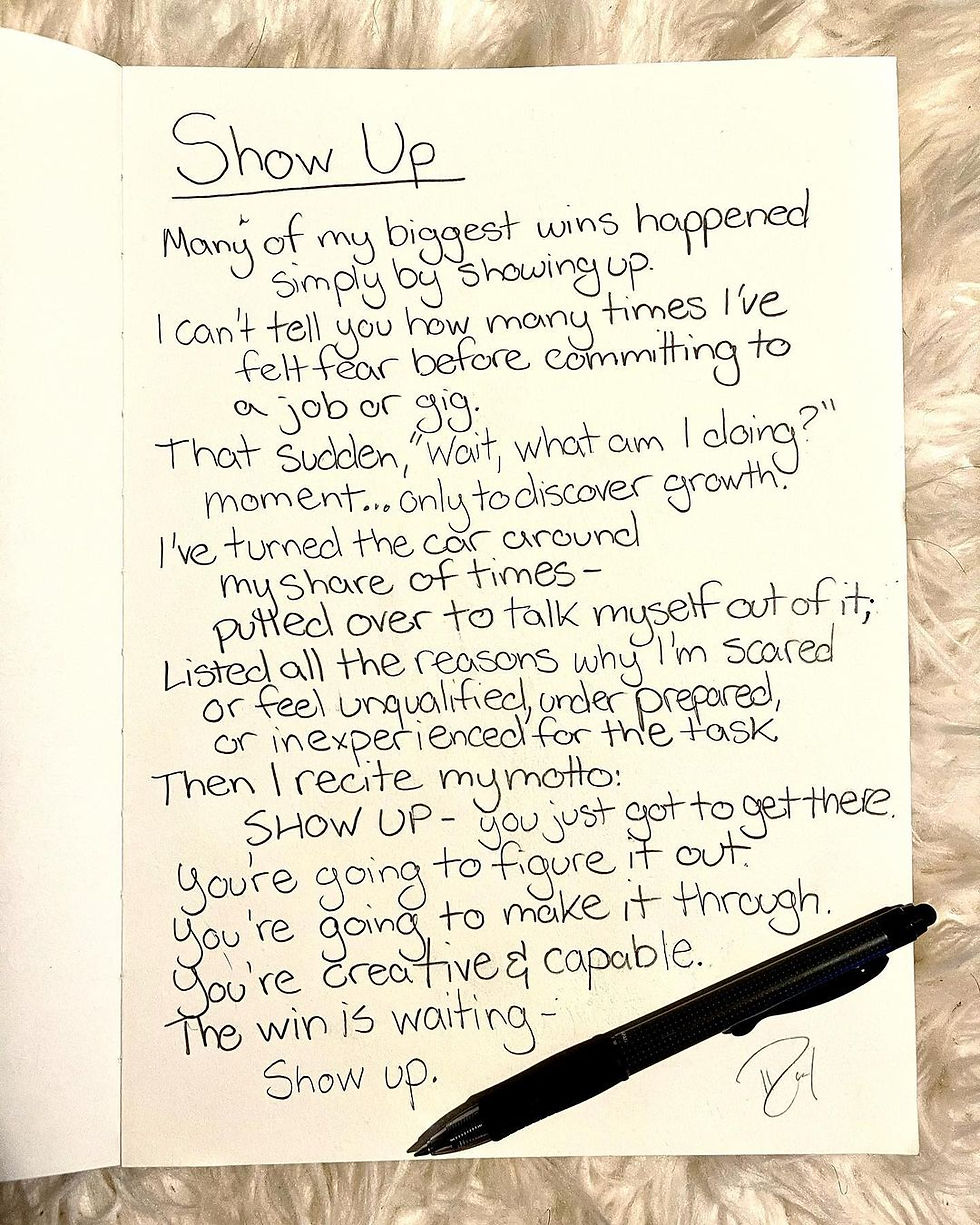 Show Up
Many of my biggest wins happened
simply by showing up.
I can't tell you how many times I've
felt fear before committing to
a job or gig.
That sudden, "Wait, what am I doing?"
moment... only to discover growth.
I've turned the car around
my share of times-
pulled over to talk myself out of it;
Listed all the reasons why I'm scared
or feel unqualified, under prepared,
or inexperienced for the task
Then I recite my motto:
SHOW UP - you just got to get there.
You're going to figure it out.
You're going to make it through.
You're creative & capable.
The win is waiting -
Show up.